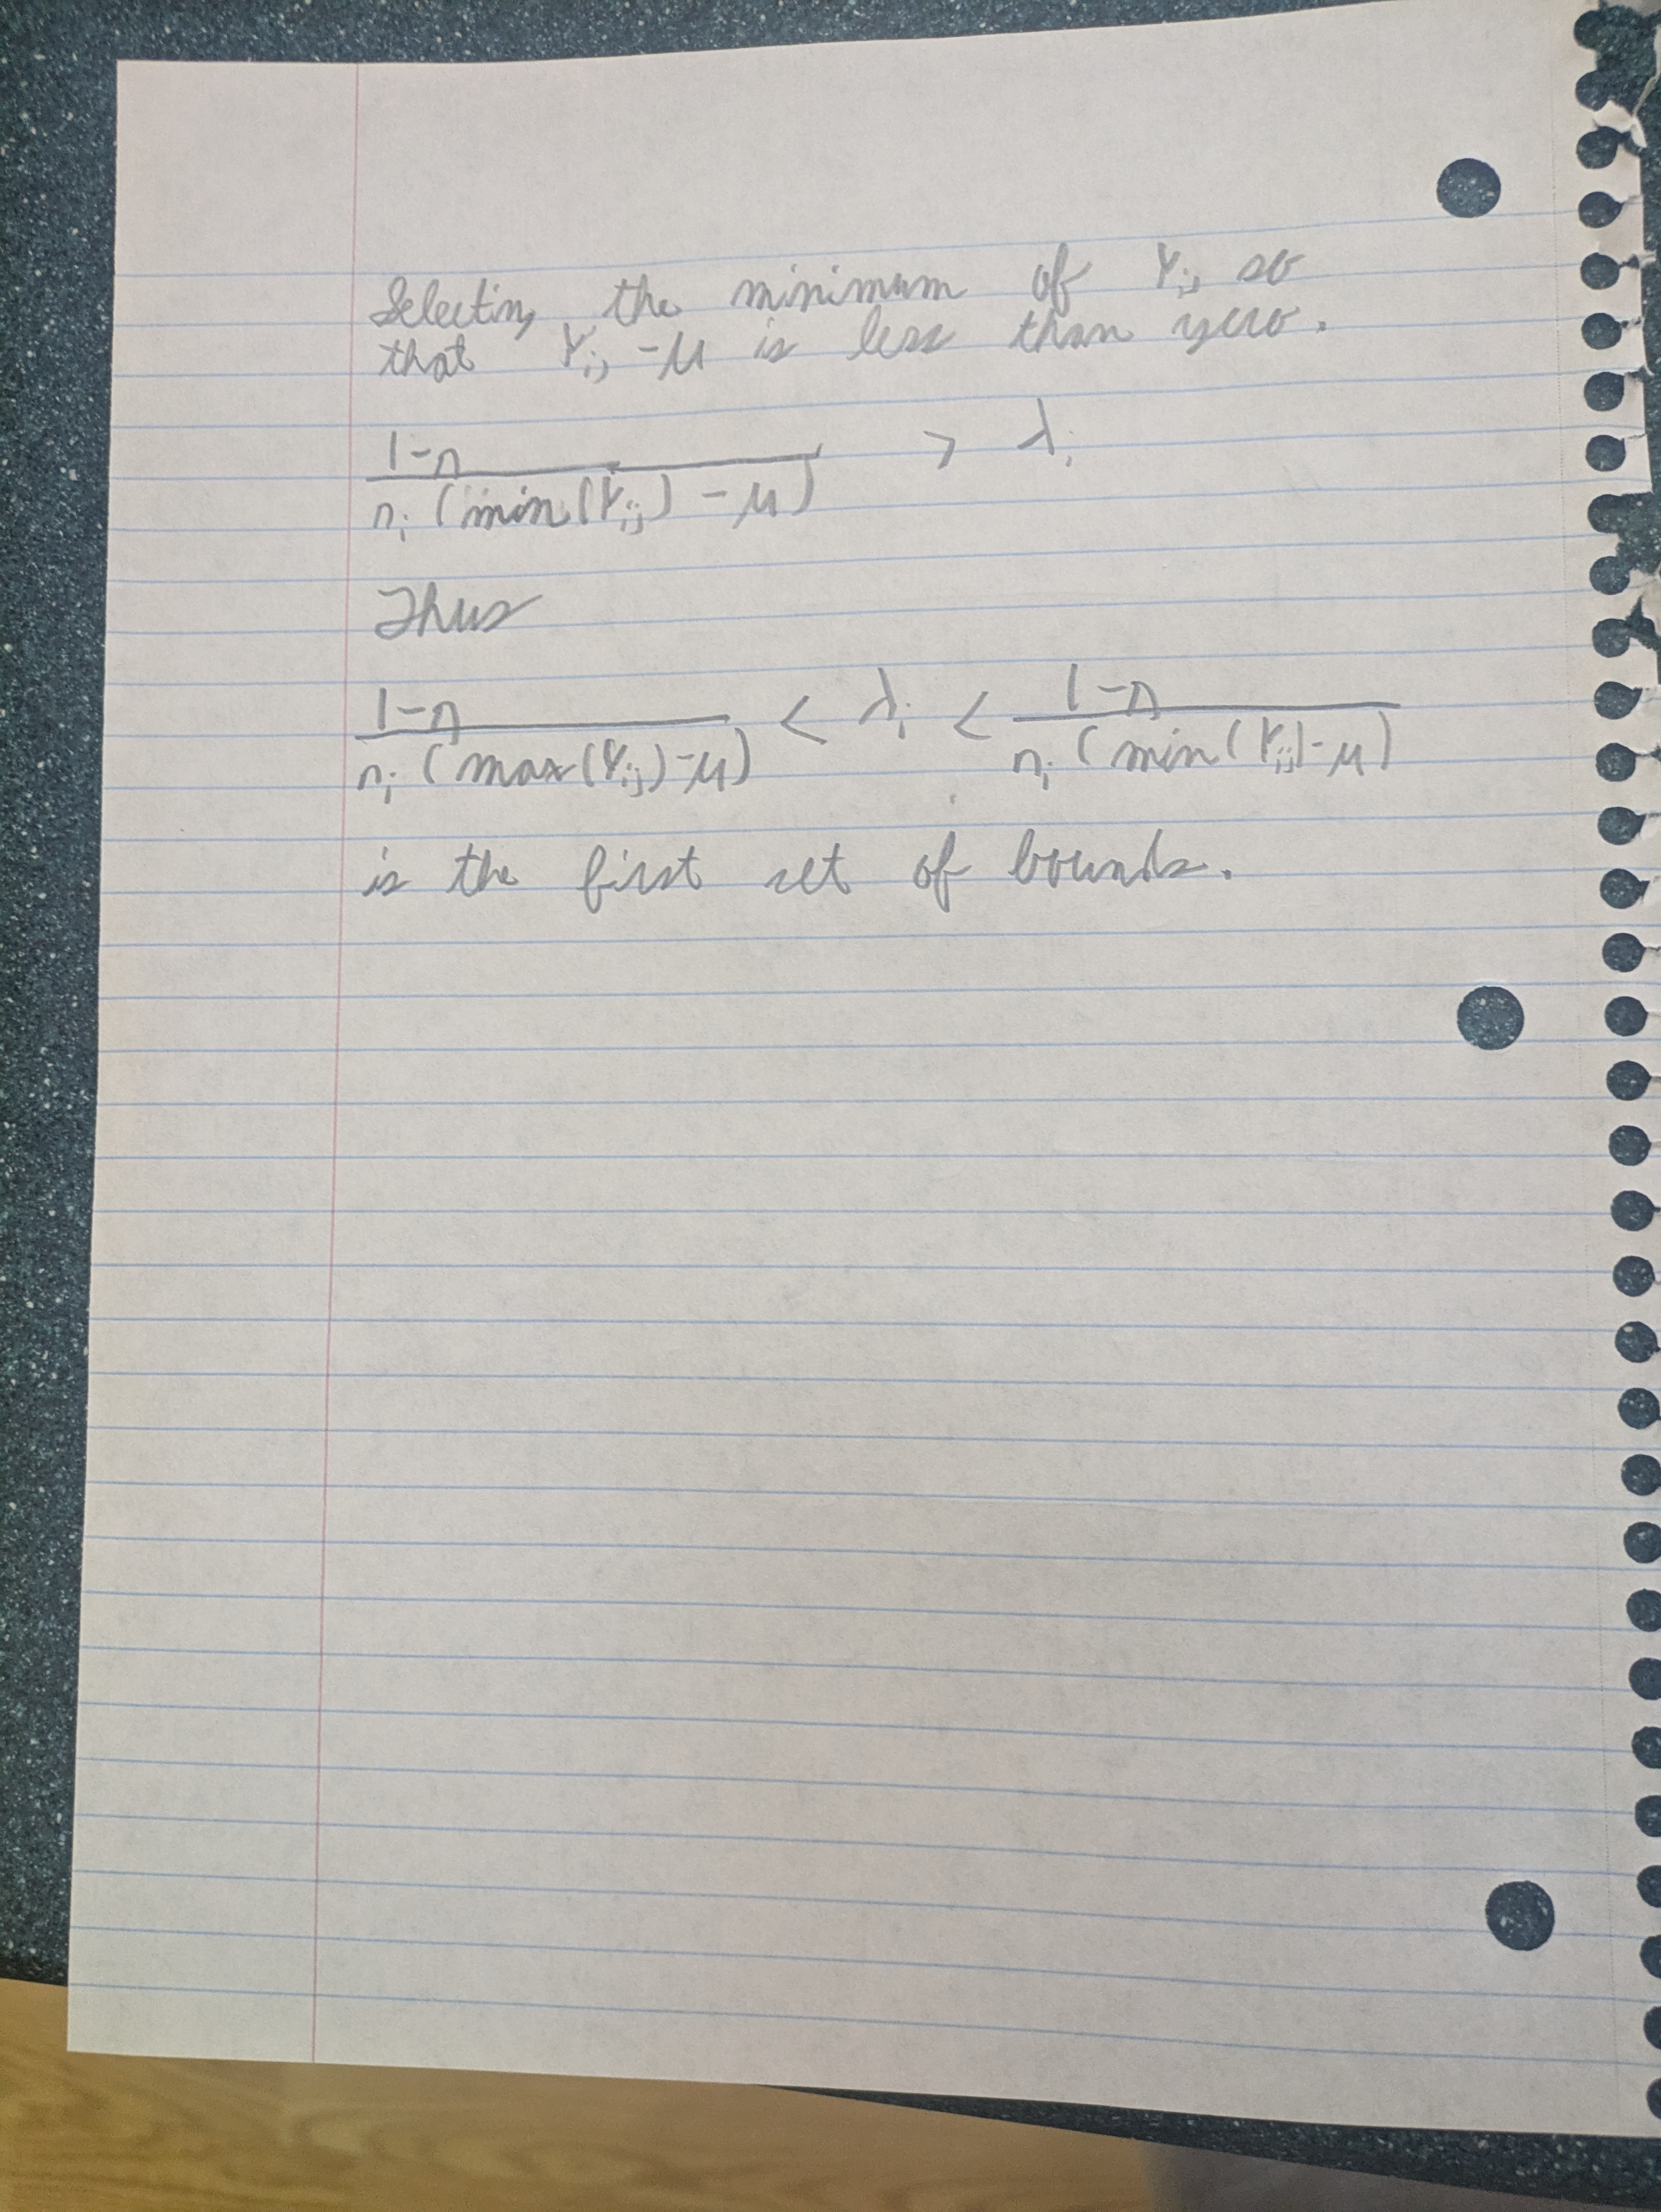 Selecting the minimum of Y_ij so
that Y_ij - μ is less than zero.
(1-n) / (n_i (min(Y_ij) - μ)) > λ_i
Thus
(1-n) / (n_i (max(Y_ij) - μ)) < λ_i < (1-n) / (n_i (min(Y_ij) - μ))
is the first set of bounds.